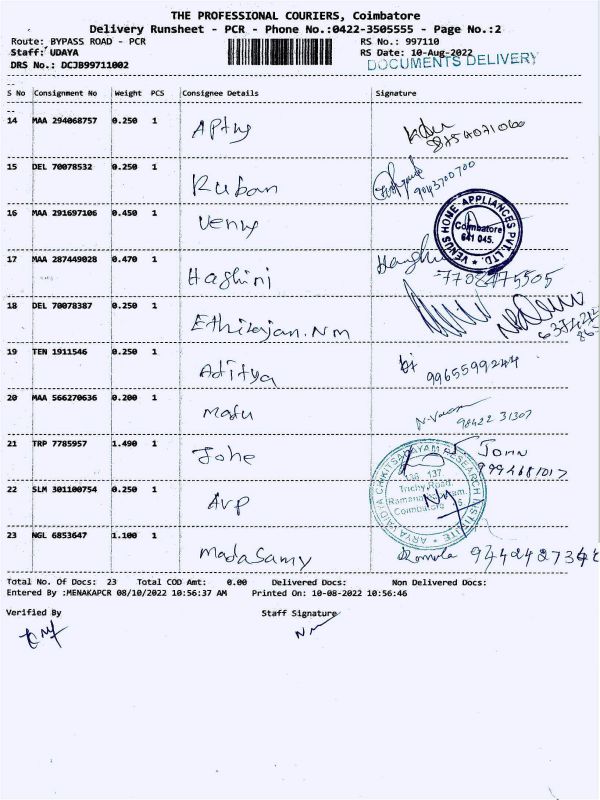 THE PROFESSIONAL COURIERS, Coimbatore
Delivery Runsheet - PCR - Phone No.:0422-3505555 - Page No.:2
Route: BYPASS ROAD - PCR RS No.: 997110
Staff: UDAYA RS Date: 10-Aug-2022
DRS No.: DCJB99711002 DOCUMENTS DELIVERY
S No Consignment No Weight PCS Consignee Details Signature
14 MAA 294068757 0.250 1
15 DEL 70078532 0.250 1 Ruban 9043700700
16 MAA 291697106 0.450 1 Venus
VENUS HOME APPLIANCES PVT. LTD.
Coimbatore
641 045.
17 MAA 287449028 0.470 1 Hashini 7708475505
18 DEL 70078387 0.250 1 Ethirajan.Nm
19 TEN 1911546 0.250 1 Aditya 9965599244
20 MAA 566270636 0.200 1 Madu 98422 31307
21 TRP 7785957 1.490 1 Johe John
ARYA VAIDYA CHIKITSALAYAM RESEARCH INSTITUTE
136, 137,
Trichy Road,
Coimbatore
22 SLM 301100754 0.250 1 AVP
23 NGL 6853647 1.100 1 MadaSamy
Total No. Of Docs: 23 Total COD Amt: 0.00 Delivered Docs: Non Delivered Docs:
Entered By :MENAKAPCR 08/10/2022 10:56:37 AM Printed On: 10-08-2022 10:56:46
Verified By Staff Signature